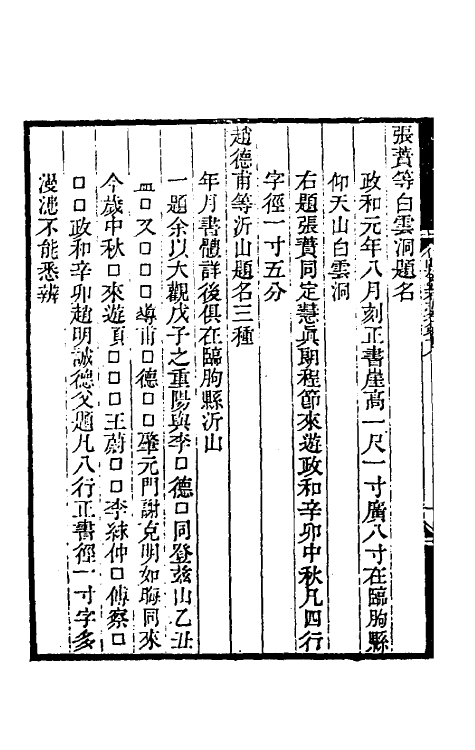 張蕡等白雲洞題名
政和元年八月刻正書崖高一尺一寸廣八寸在臨朐縣
仰天山白雲洞
右題張蕡同定慧眞期程節來遊政和辛卯中秋凡四行
字徑一寸五分
趙德甫等沂山題名三種
年月書體詳後俱在臨朐縣沂山
一題余以大觀戊子之重陽與李□德□同登茲山乙丑
□又□□□導甫□德□□肇元門謝克明如晦同來
今歲中秋□來遊項□□□王蔚□□李綠仲□傅察□
□□政和辛卯趙明誠德父題凡八行正書徑一寸字多
漫漶不能悉辨